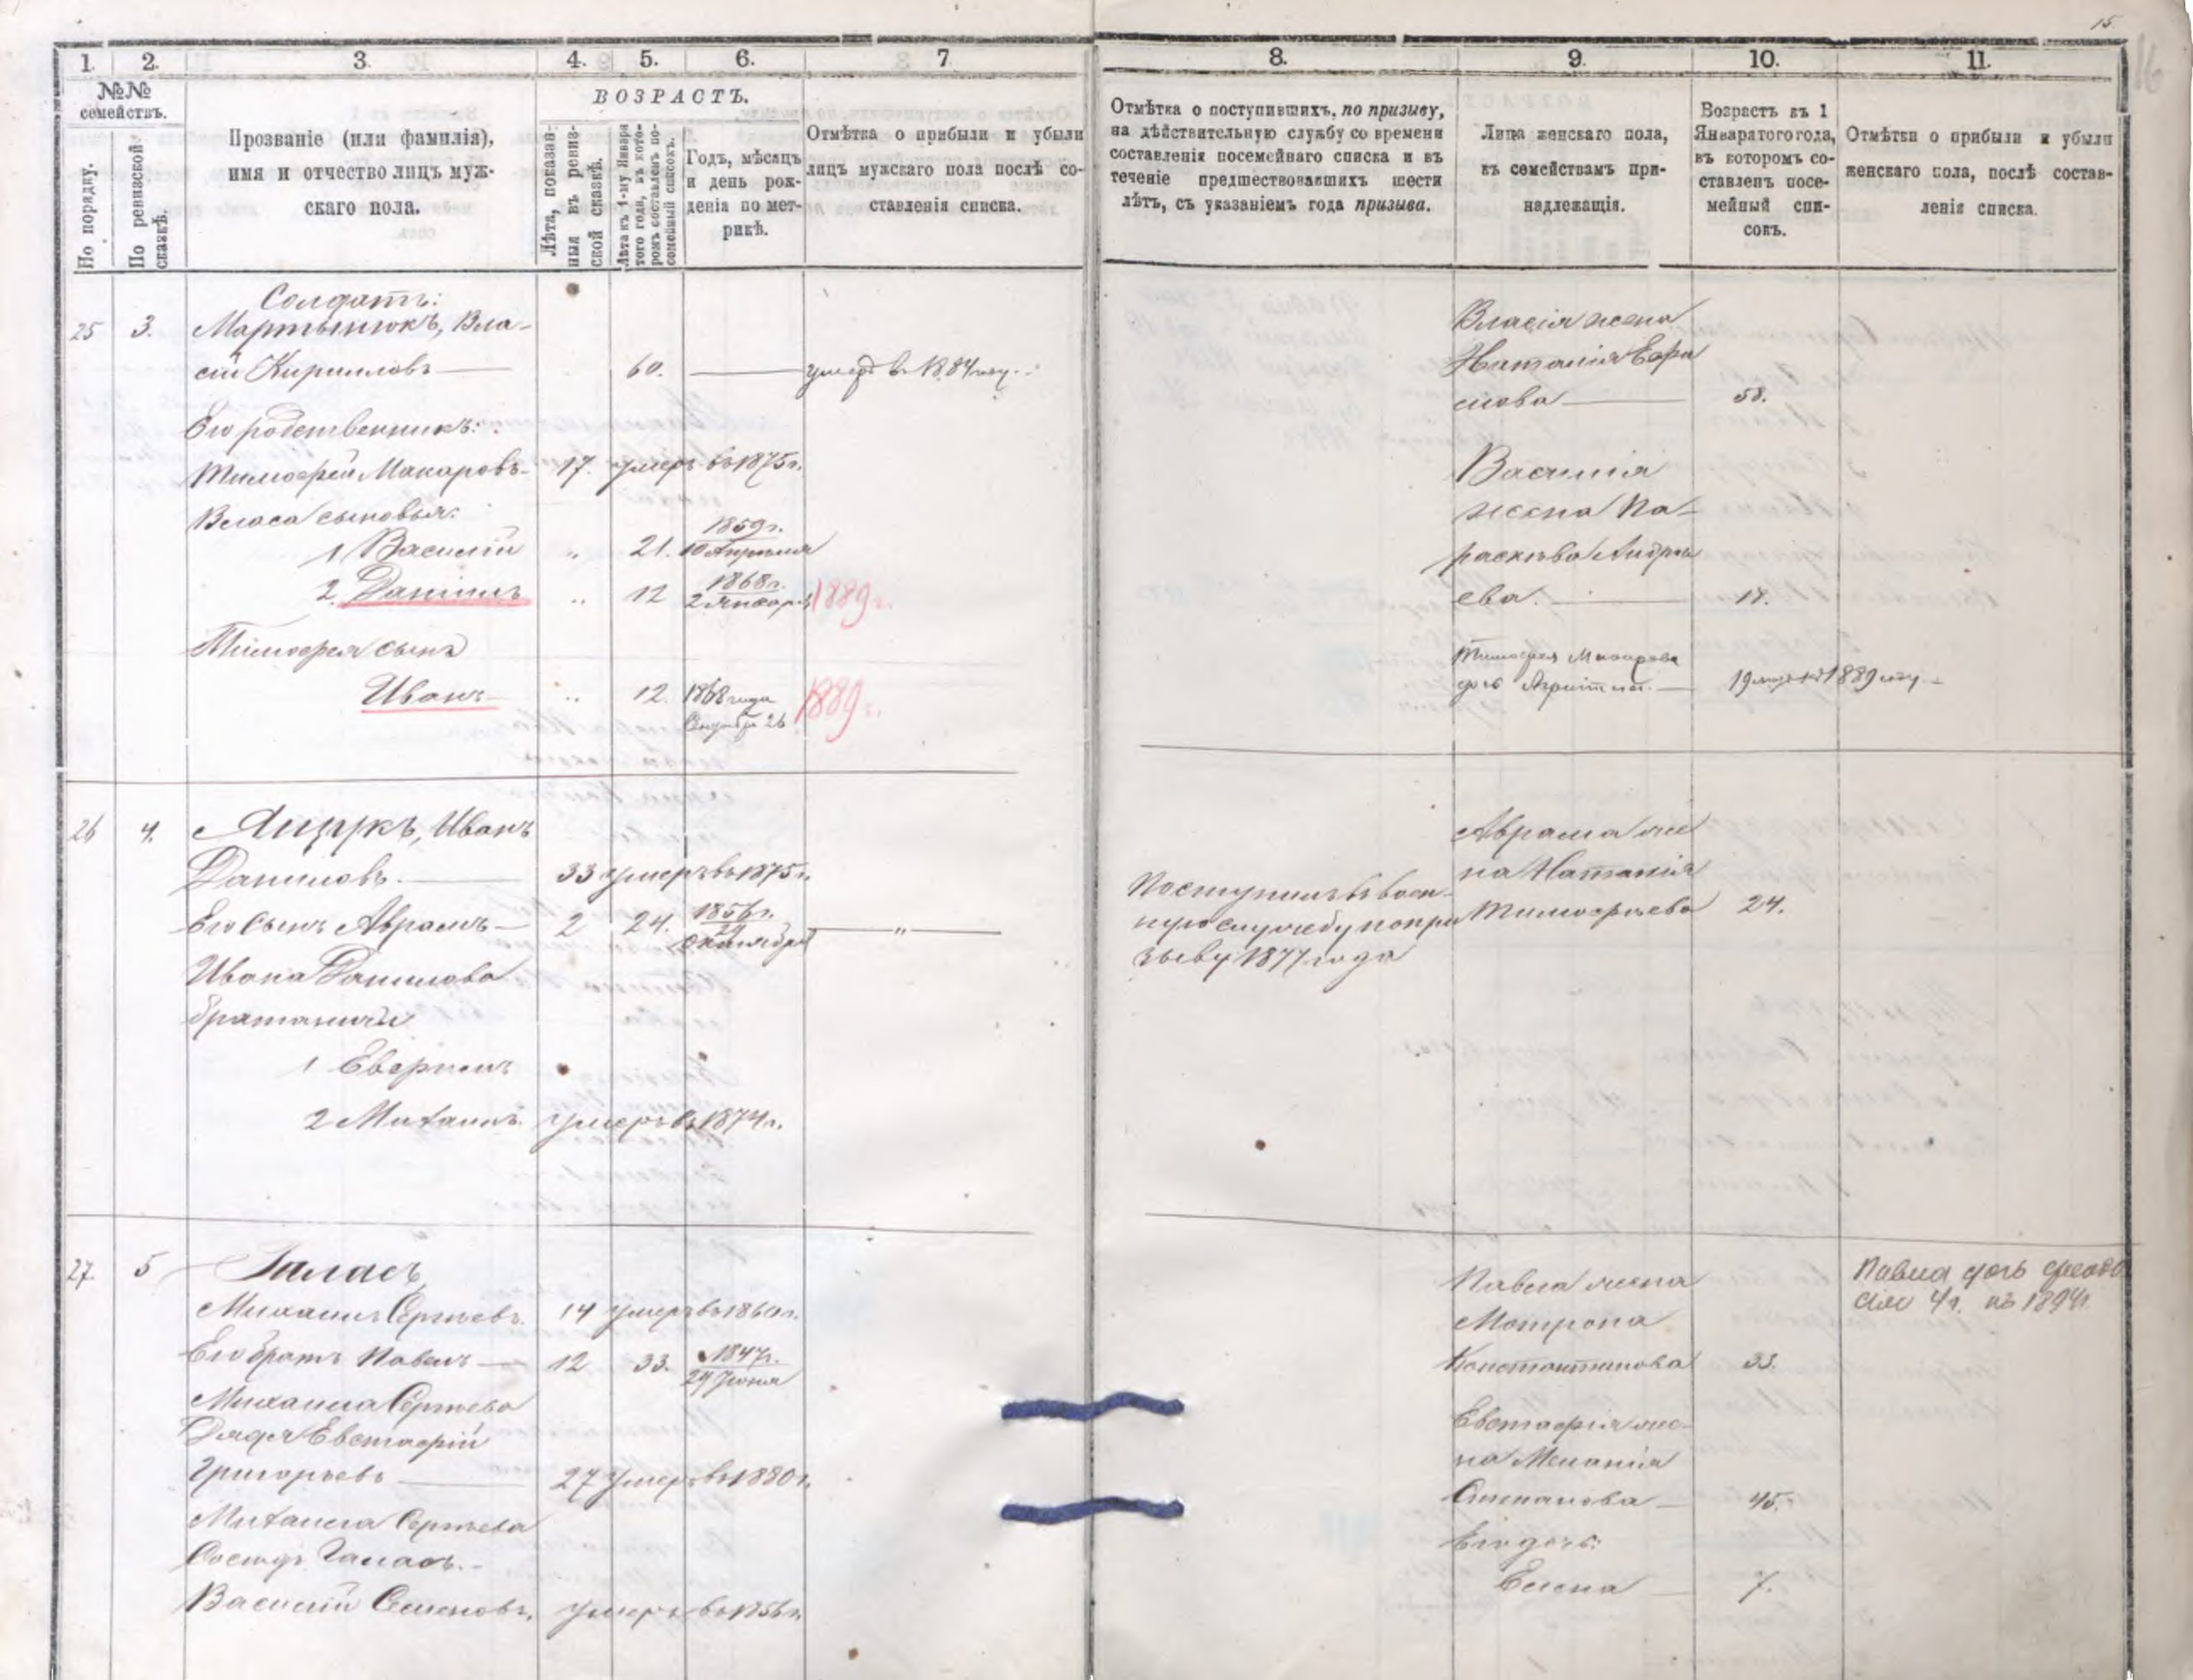 15
16
1. 2. 3. 4. 5. 6. 7
№№ семействъ.
По порядку.
По ревизской сказкѣ.
Прозваніе (или фамилія),
имя и отчество лицъ муж-
скаго пола.
ВОЗРАСТЪ.
Лѣта, показан-
ныя въ ревиз-
ской сказкѣ.
Лѣта къ 1-му Января
того года, въ кото-
ромъ составленъ по-
семейный списокъ.
Годъ, мѣсяцъ
и день рож-
денія по мет-
рикѣ.
Отмѣтка о прибыли и убыли
лицъ мужскаго пола послѣ со-
ставленія списка.
8. 9. 10. 11.
Отмѣтка о поступившихъ, по призыву,
на дѣйствительную службу со времени
составленія посемейнаго списка и въ
теченіе предшествовавшихъ шести
лѣтъ, съ указаніемъ года призыва.
Лица женскаго пола,
къ семействамъ при-
надлежащія.
Возрастъ къ 1
Января того года,
въ которомъ со-
ставленъ посе-
мейный спи-
сокъ.
Отмѣтки о прибыли и убыли
женскаго пола, послѣ состав-
ленія списка.
Солдатъ:
25 3. Мартынюкъ, Вла-
сій Кирилловъ 60. умеръ въ 1884 году.
Его родственникъ:
Тимофей Макаровъ 17. умеръ въ 1875 г.
Власа сыновья:
1 Василій „ 21. 1859 г. 10 Апрѣля
2. Даніилъ „ 12 1868 г. 2 Января 1889 г.
Тимофея сынъ
Иванъ „ 12. 1868 года 26 1889 г.
Власія жена
Наталія
58.
Василія
жена Па-
раскева Андре
ева. 19.
Тимофея Макарова
дочь 19 1889 году
26 4. Ящукъ, Иванъ
Даниловъ. 33 умеръ въ 1875 г.
Его сынъ Аврамъ 2 24. 1856 г. 29 Октября „
Ивана Данилова
братаничи
1
2 Михаилъ. умеръ въ 1874 г.
Поступилъ въ воен-
ную службу по при
зыву 1877 года
Аврама же
на Наталія
Тимофѣева 24.
27. 5 Галасъ,
Михаилъ Сергѣевъ. 14 умеръ въ 1860 г.
Его братъ Павелъ 12 33. 1847 г. 29 Іюня
Михаила Сергѣева
Дядя Евстафій
Григорьевъ 27 умеръ въ 1880 г.
Михаила Сергѣева
Галасъ.
Василій Семеновъ, умеръ въ 1856 г.
Павла жена
Мотрона
Константинова 33.
Евстафія же-
на Меланія
Степанова 45.
Его дочь:
Елена 7.
Павла дочь
4 г. къ 1894 г.